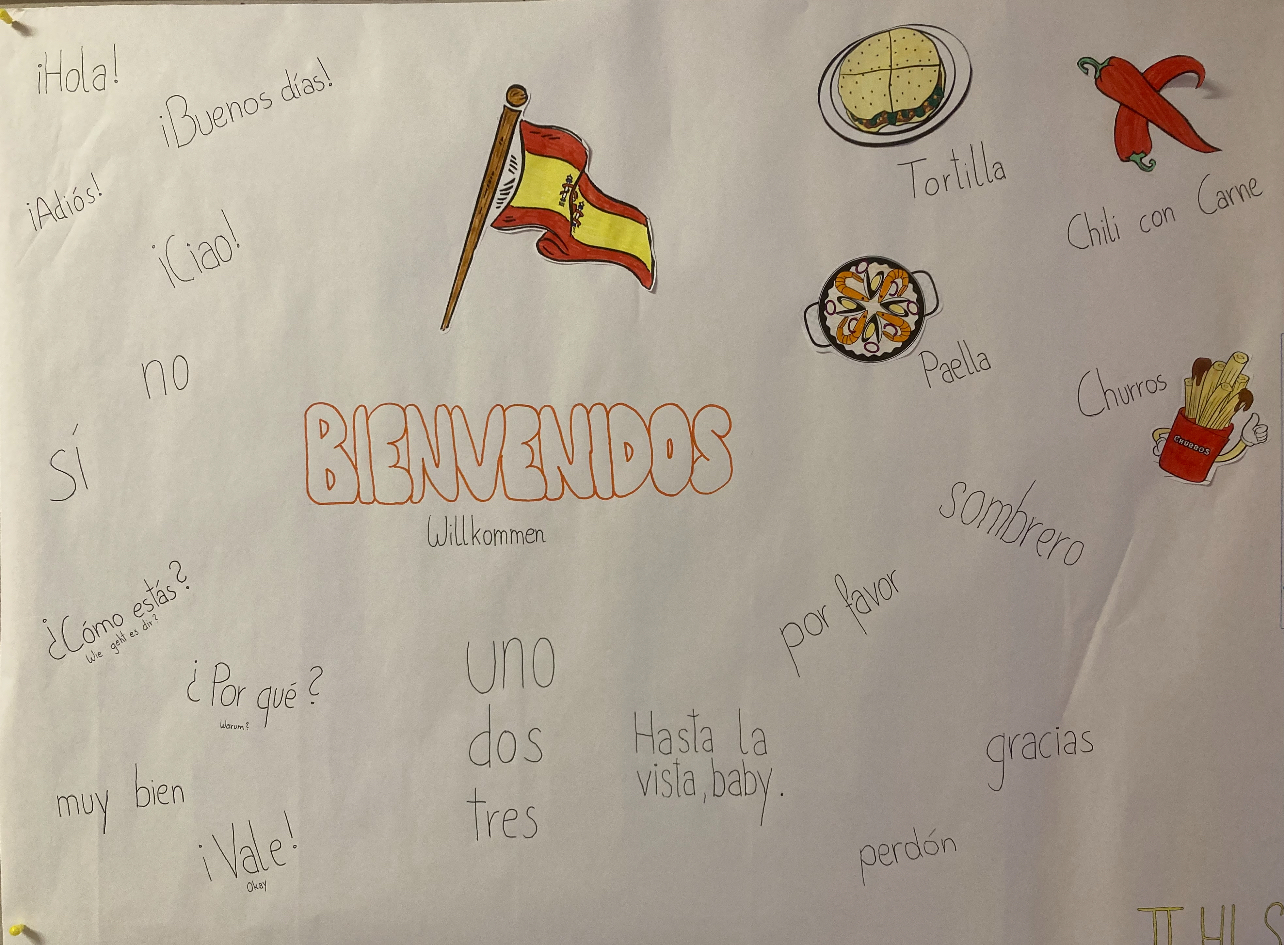 ¡Hola!
¡Buenos días!
¡Adiós!
¡Ciao!
no
sí
¿Cómo estás?
Wie geht es dir?
¿Por qué?
Warum?
muy bien
¡Vale!
Okay
BIENVENIDOS
Willkommen
uno
dos
tres
Hasta la
vista, baby.
Tortilla
Chili con Carne
Paella
Churros
CHURROS
sombrero
por favor
gracias
perdón